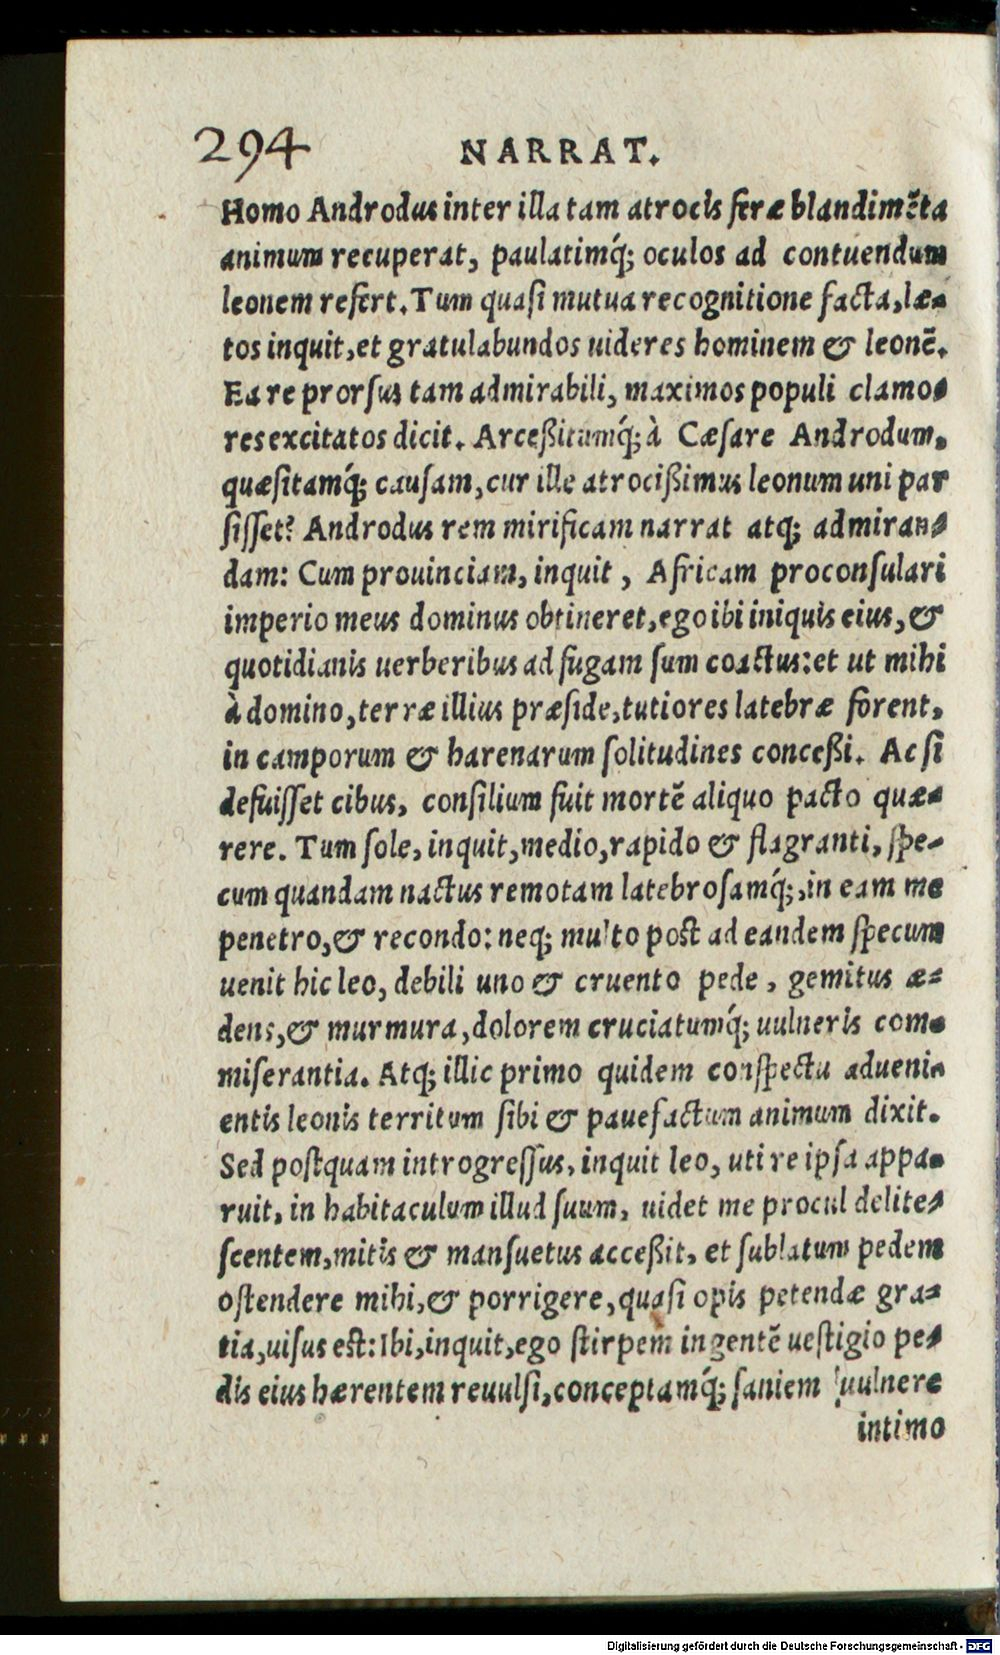 294 NARRAT.
Homo Androdus inter illa tam atrocis feræ blandimēta
animum recuperat, paulatimq́; oculos ad contuendum
leonem refert. Tum quasi mutua recognitione facta, læ-
tos inquit, et gratulabundos uideres hominem & leonē.
Ea re prorsus tam admirabili, maximos populi clamo-
res excitatos dicit. Arceßitumq́; à Cæsare Androdum,
quæsitamq́; causam, cur ille atrocißimus leonum uni par
sisset? Androdus rem mirificam narrat atq; admiran-
dam: Cum prouinciam, inquit, Africam proconsulari
imperio meus dominus obtineret, ego ibi iniquis eius, &
quotidianis uerberibus ad fugam sum coactus: et ut mihi
à domino, terræ illius præside, tutiores latebræ forent,
in camporum & harenarum solitudines conceßi. Ac si
defuisset cibus, consilium fuit mortē aliquo pacto quæ-
rere. Tum sole, inquit, medio, rapido & flagranti, spe-
cum quandam nactus remotam latebrosamq́;, in eam me
penetro, & recondo: neq; multo post ad eandem specum
uenit hic leo, debili uno & cruento pede, gemitus æ-
dens, & murmura, dolorem cruciatumq́; uulneris com-
miserantia. Atq; illic primo quidem conspectu adueni-
entis leonis territum sibi & pauefactum animum dixit.
Sed postquam introgressus, inquit leo, uti re ipsa appa-
ruit, in habitaculum illud suum, uidet me procul delite-
scentem, mitis & mansuetus acceßit, et sublatum pedem
ostendere mihi, & porrigere, quasi opis petendæ gra-
tia, uisus est: Ibi, inquit, ego stirpem ingentē uestigio pe-
dis eius hærentem reuulsi, conceptamq́; saniem uulnere
intimo
Digitalisierung gefördert durch die Deutsche Forschungsgemeinschaft - DFG